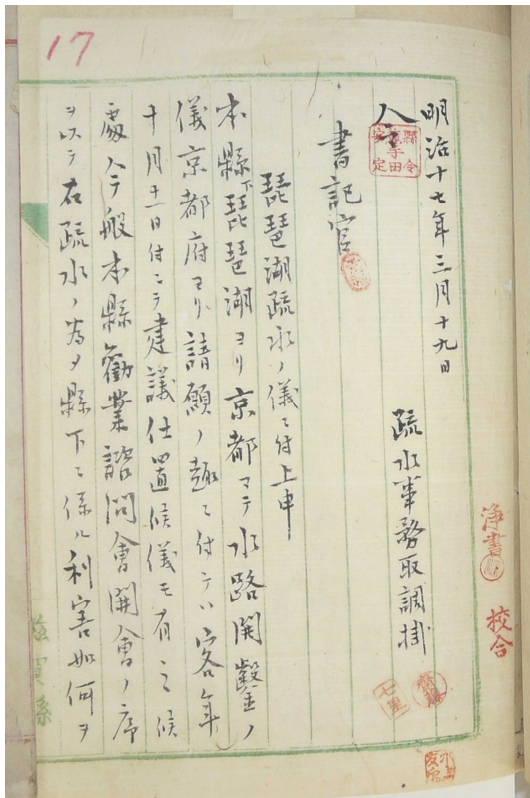 17
明治十七年三月十九日
疏水事務取調掛
令
書記官
琵琶湖疏水ノ儀ニ付上申
本縣下琵琶湖ヨリ京都マテ水路開鑿ノ
儀京都府ヨリ請願ノ趣ニ付テハ客年
十月十二日付ニテ建議仕置候儀モ有之候
處今般本縣勸業諮問會開會ノ席
ヲ以テ右疏水ノ為メ縣下ニ係ル利害如何ヲ
浄書
校合
滋賀縣